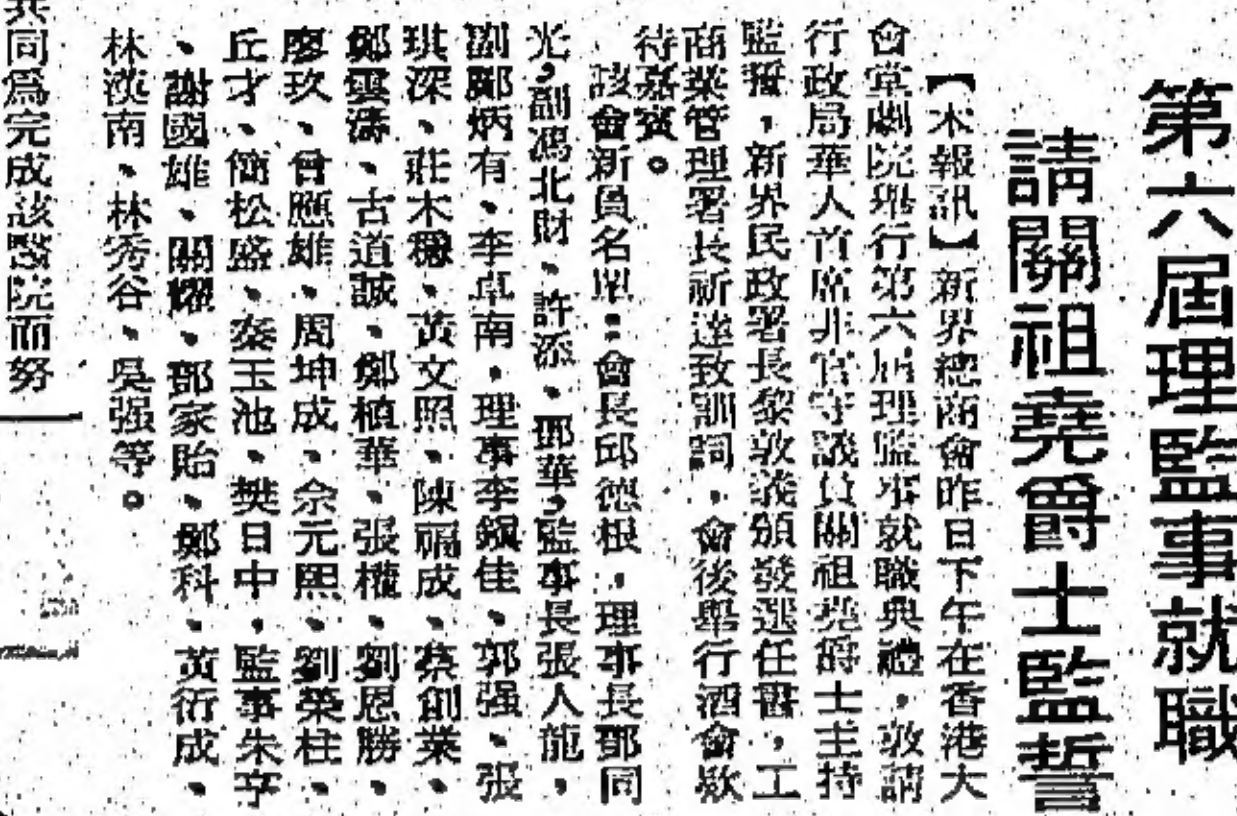 第六屆理監事就職
請關祖堯爵士監誓
【本報訊】新界總商會昨日下午在香港大
會堂劇院舉行第六屆理監事就職典禮,敦請
行政局華人首席非官守議員關祖堯爵士主持
監誓,新界民政署長黎敦義頒發選任書,工
商業管理署長祈達致訓詞,會後舉行酒會欵
待嘉賓。
該會新員名單:會長邱德根,理事長鄧同
光,副馮北財、許添、鄧華,監事長張人龍,
副鄺炳有、李卓南,理事李佳、郭强、張
琪深、莊木、黃文照、陳福成、蔡創業、
鄭雲濤、古道誠、鄭植華、張權、劉恩勝、
廖玖、曾應雄、周坤成、佘元熙、劉榮柱、
丘才、簡松盛、秦玉池、樊日中,監事朱亨
、謝國雄、關耀、鄧家貽、鄭科、黃衍成、
林漢南、林秀谷、吳强等。
共同爲完成該醫院而努